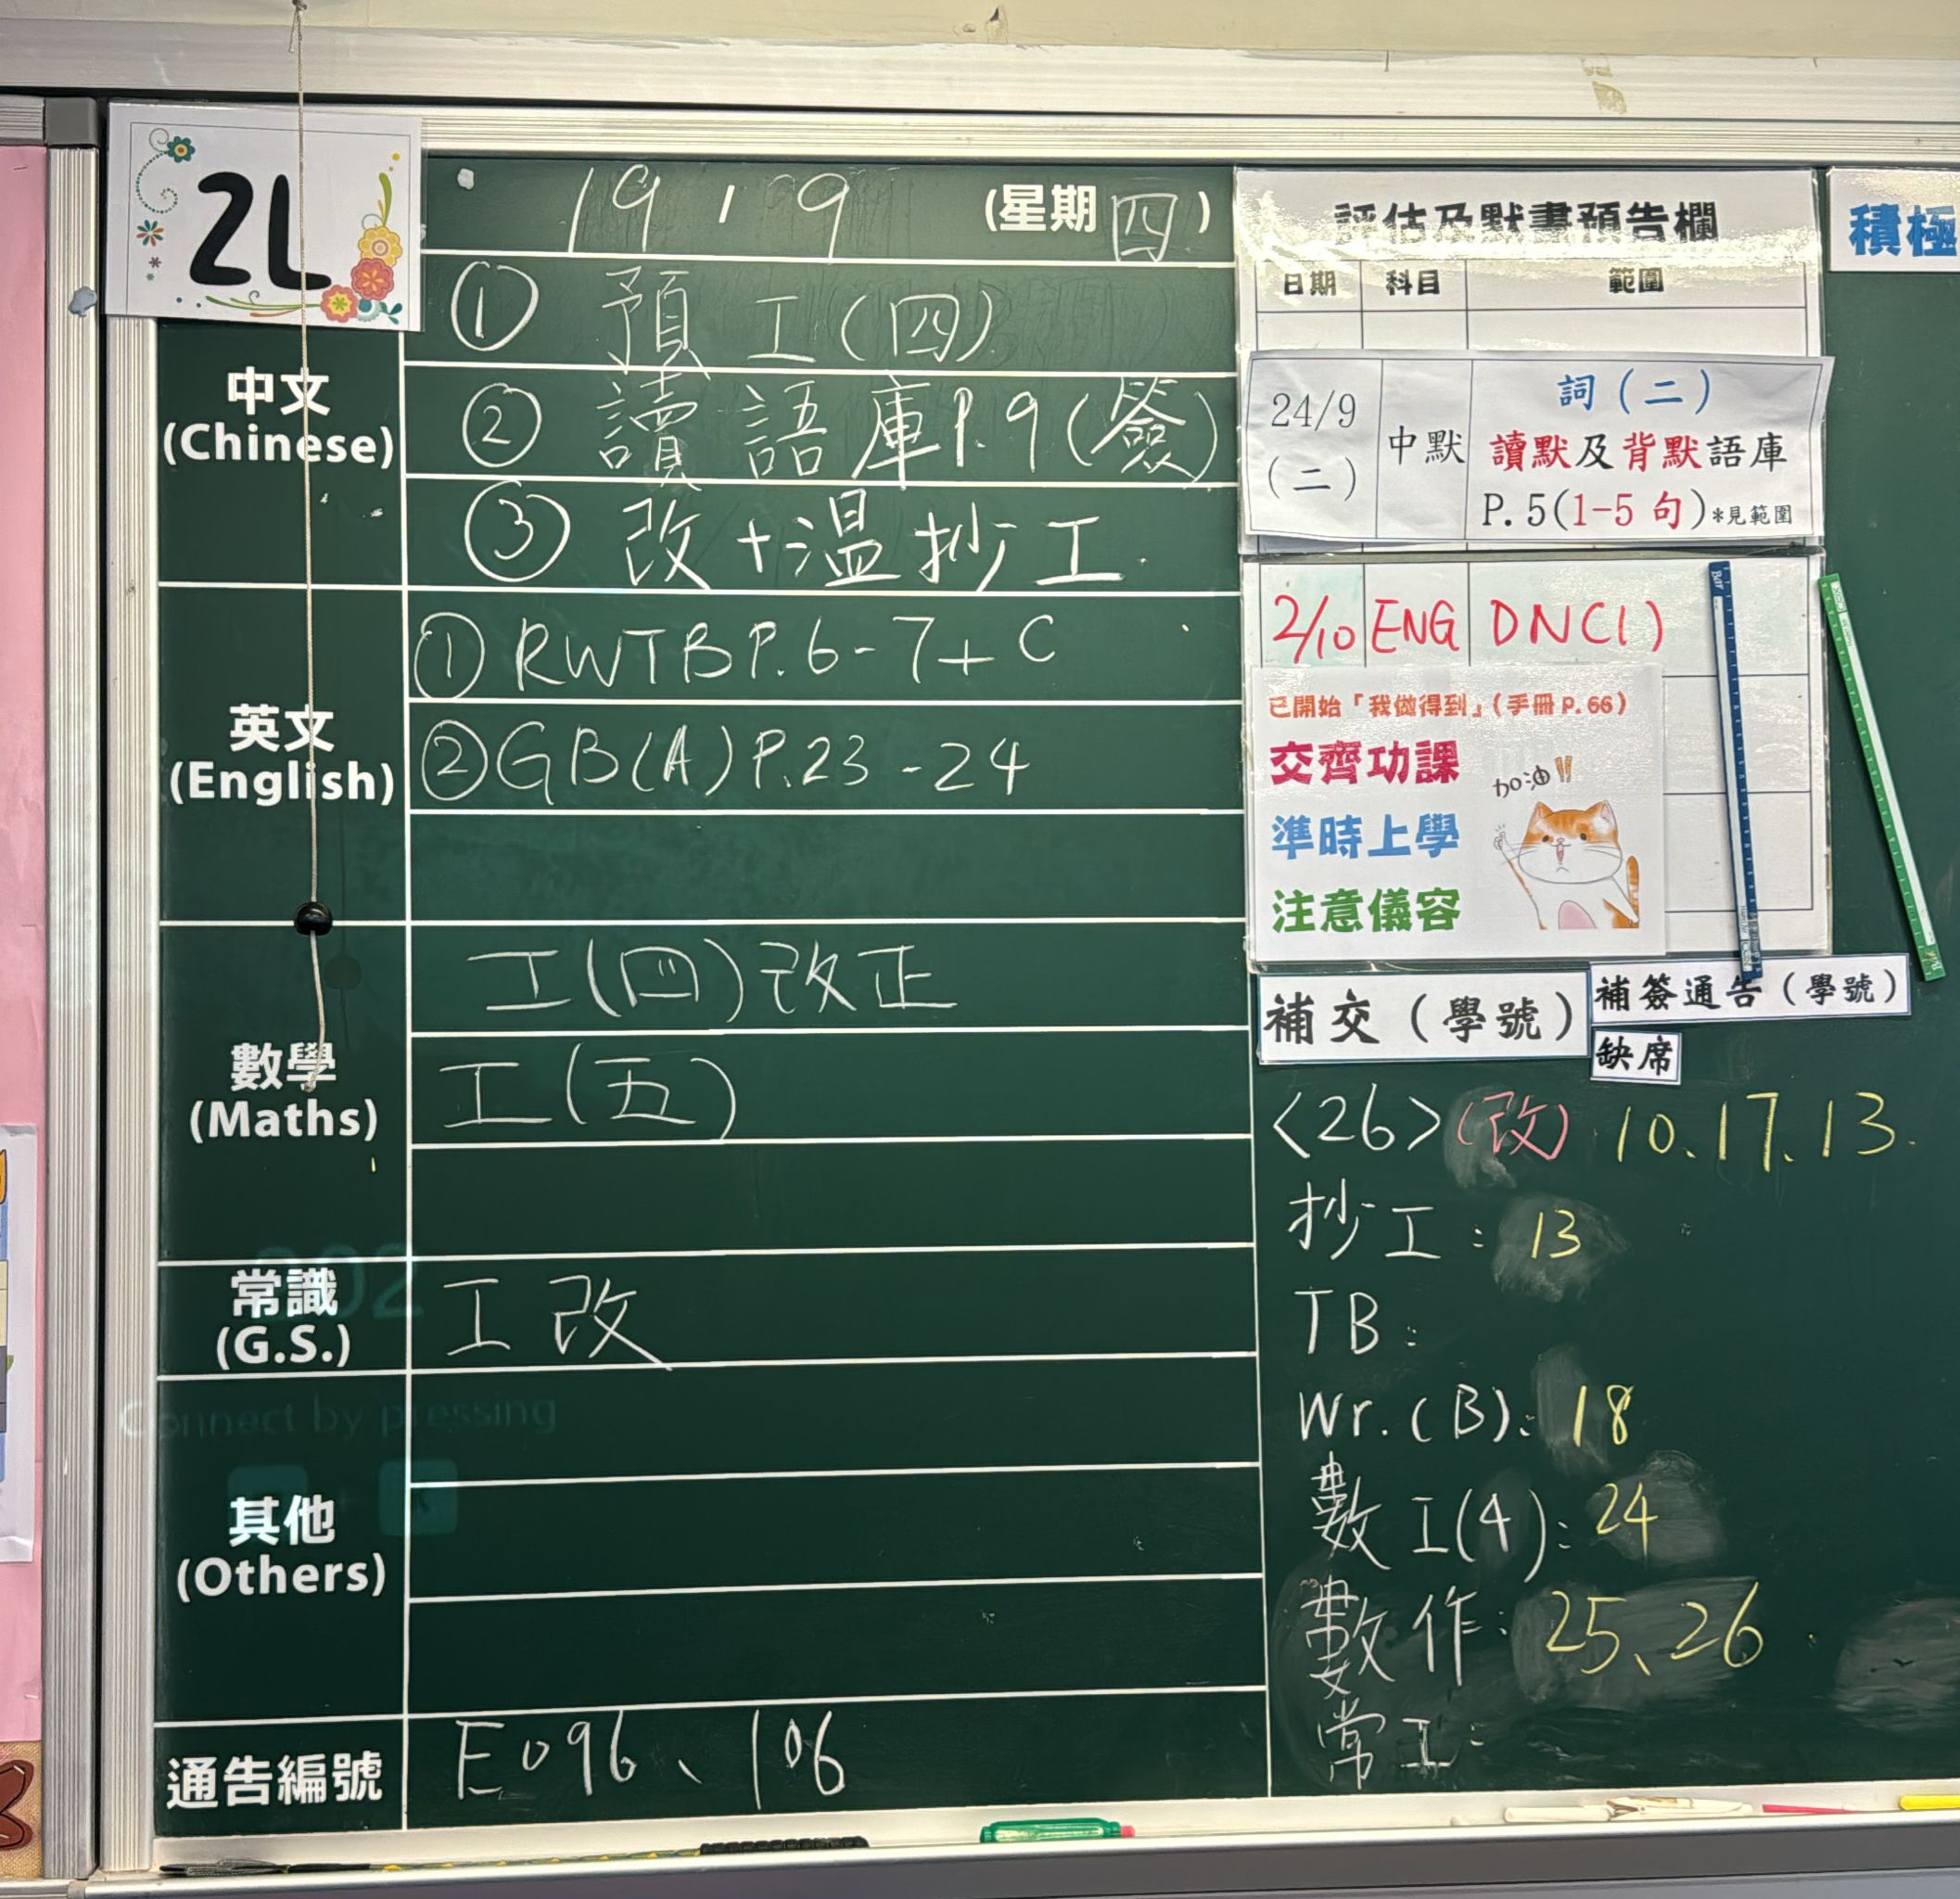 2L
19 , 9 (星期四)
中文
(Chinese)
① 預工(四)
② 讀語庫P.9(簽)
③ 改+温抄工
英文
(English)
① RWTB P.6-7+C
② GB(A) P.23-24
數學
(Maths)
工(四)改正
工(五)
常識
(G.S.)
工改
其他
(Others)
Connect by pressing
通告編號
E096、106
評估及默書預告欄
日期 科目 範圍
24/9
(二)
中默
詞(二)
讀默及背默語庫
P.5(1-5句)*見範圍
2/10 ENG DNC(1)
已開始「我做得到」(手冊 P.66)
交齊功課
準時上學
注意儀容
加油!!
積極
補交(學號)
補簽通告(學號)
缺席
<26>(改) 10、17、13.
抄工: 13
TB:
Wr.(B): 18
數工(4): 24
數作: 25、26
常工: